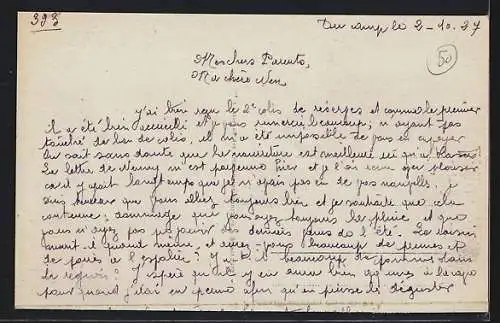 393
Du camp le 2-10-27
50
Mes chers Parents,
Ma chère Nen
J'ai bien reçu le 2e colis de réserves et comme le premier
Il a été bien accueilli et vous remercie beaucoup; n'ayant pas
de bon de colis, il m'a été impossible de vous en envoyer
On sait sans doute que la nourriture est meilleure ici qu'à
La lettre de m'est parvenue hier et je l'ai avec plaisir
car il y avait longtemps que je n'avais pas eu de vos nouvelles. Je
suis heureux que vous alliez toujours bien et je souhaite que cela
continue; dommage que vous ayez toujours la pluie et que
vous n'ayez pas pu jouir des derniers jours de l'été. Le raisin
mûrit il quand même, et avez-vous beaucoup de prunes et
de poires à l'espalier? Y a-t-il beaucoup de dans
les? J'espère qu'il y en aura bien
pour quand j'irai en perme afin qu'on puisse le déguster